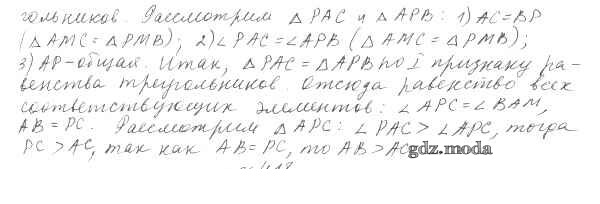 гольников. Рассмотрим △ PAC и △ APB: 1) AC=BP
(△ AMC = △ PMB); 2) ∠ PAC = ∠ APB (△ AMC = △ PMB);
3) AP-общая. Итак, △ PAC = △ APB по I признаку ра-
венства треугольников. Отсюда равенство всех
соответствующих элементов: ∠ APC = ∠ BAM,
AB = PC. Рассмотрим △ APC: ∠ PAC > ∠ APC, тогда
PC > AC, так как AB = PC, то AB > AC
gdz.moda